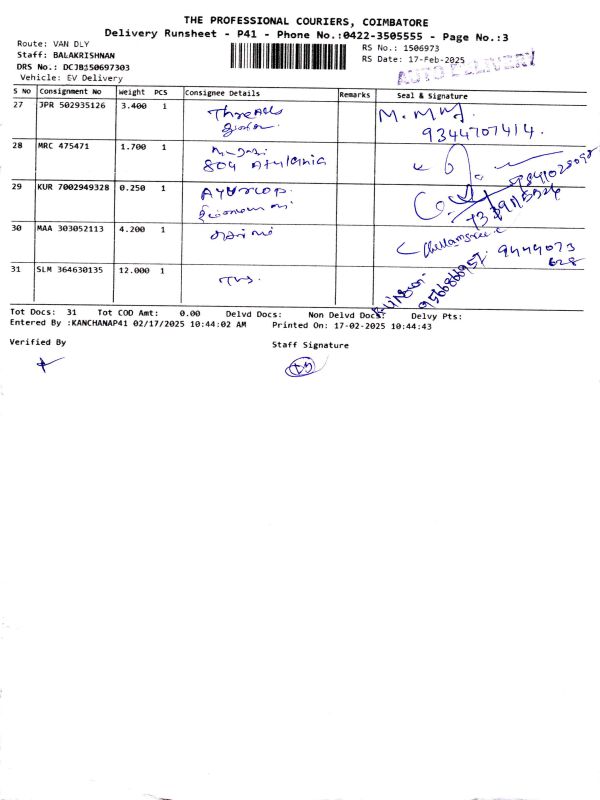 THE PROFESSIONAL COURIERS, COIMBATORE
Delivery Runsheet - P41 - Phone No.:0422-3505555 - Page No.:3
Route: VAN DLY
RS No.: 1506973
Staff: BALAKRISHNAN
RS Date: 17-Feb-2025
DRS No.: DCJB150697303
AUTO DELIVERY
Vehicle: EV Delivery
S No Consignment No Weight PCS Consignee Details Remarks Seal & Signature
27 JPR 502935126 3.400 1 Threads
9344707414.
28 MRC 475471 1.700 1
804 Atulania
29 KUR 7002949328 0.250 1
30 MAA 303052113 4.200 1 9444073
628
31 SLM 364630135 12.000 1 TVS. 9566866957
Tot Docs: 31 Tot COD Amt: 0.00 Delvd Docs: Non Delvd Docs: Delvy Pts:
Entered By :KANCHANAP41 02/17/2025 10:44:02 AM Printed On: 17-02-2025 10:44:43
Verified By
Staff Signature